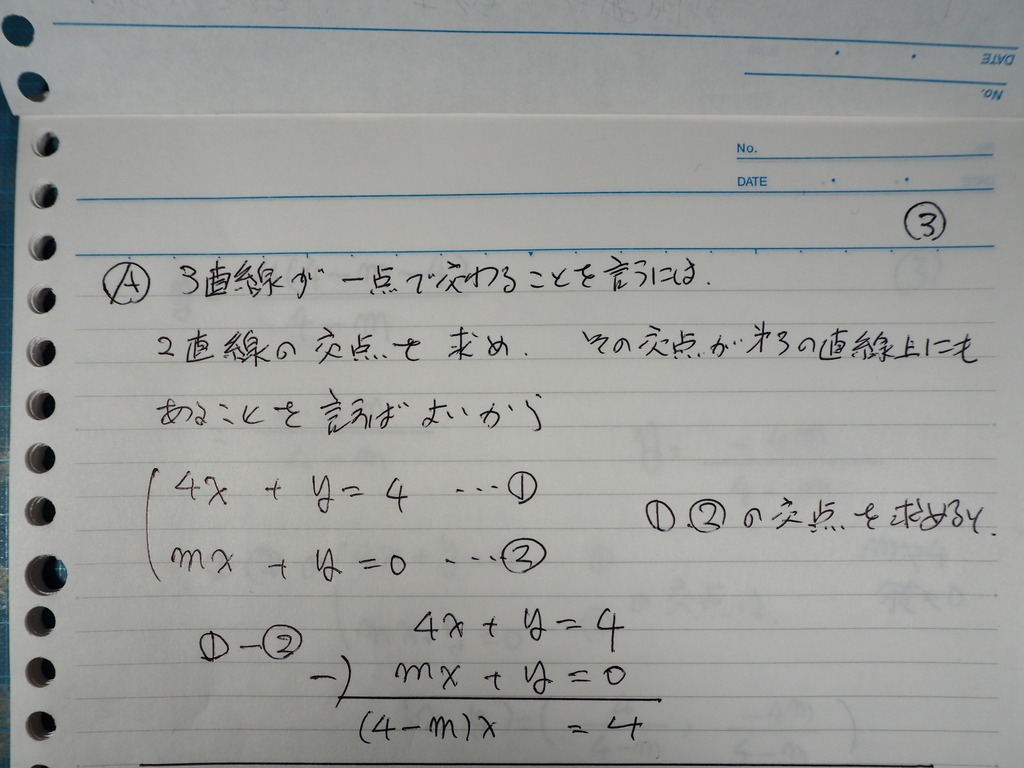 DATE
No.
No.
DATE
③
Ⓐ 3直線が一点で交わることを言うには.
2直線の交点を求め. その交点が第3の直線上にも
あることを言えばよいから
4x + y = 4 …①
①.②の交点を求めると.
mx + y = 0 …②
①-②
4x + y = 4
-) mx + y = 0
(4-m)x = 4